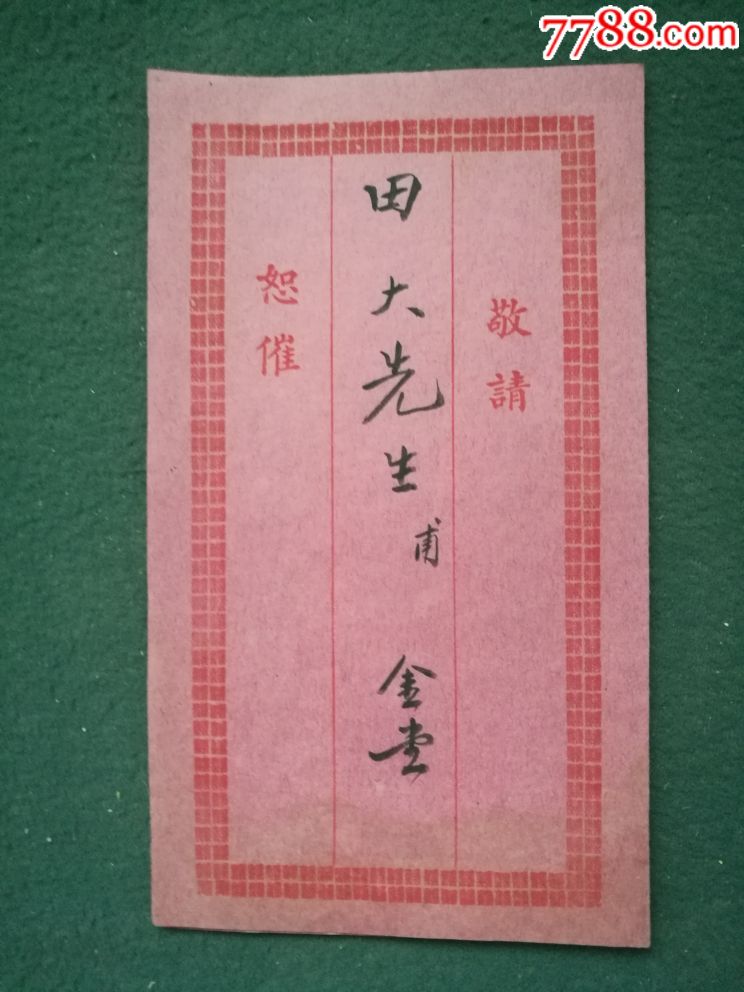 7788.com
敬請
田大先生甫 金堂
恕催